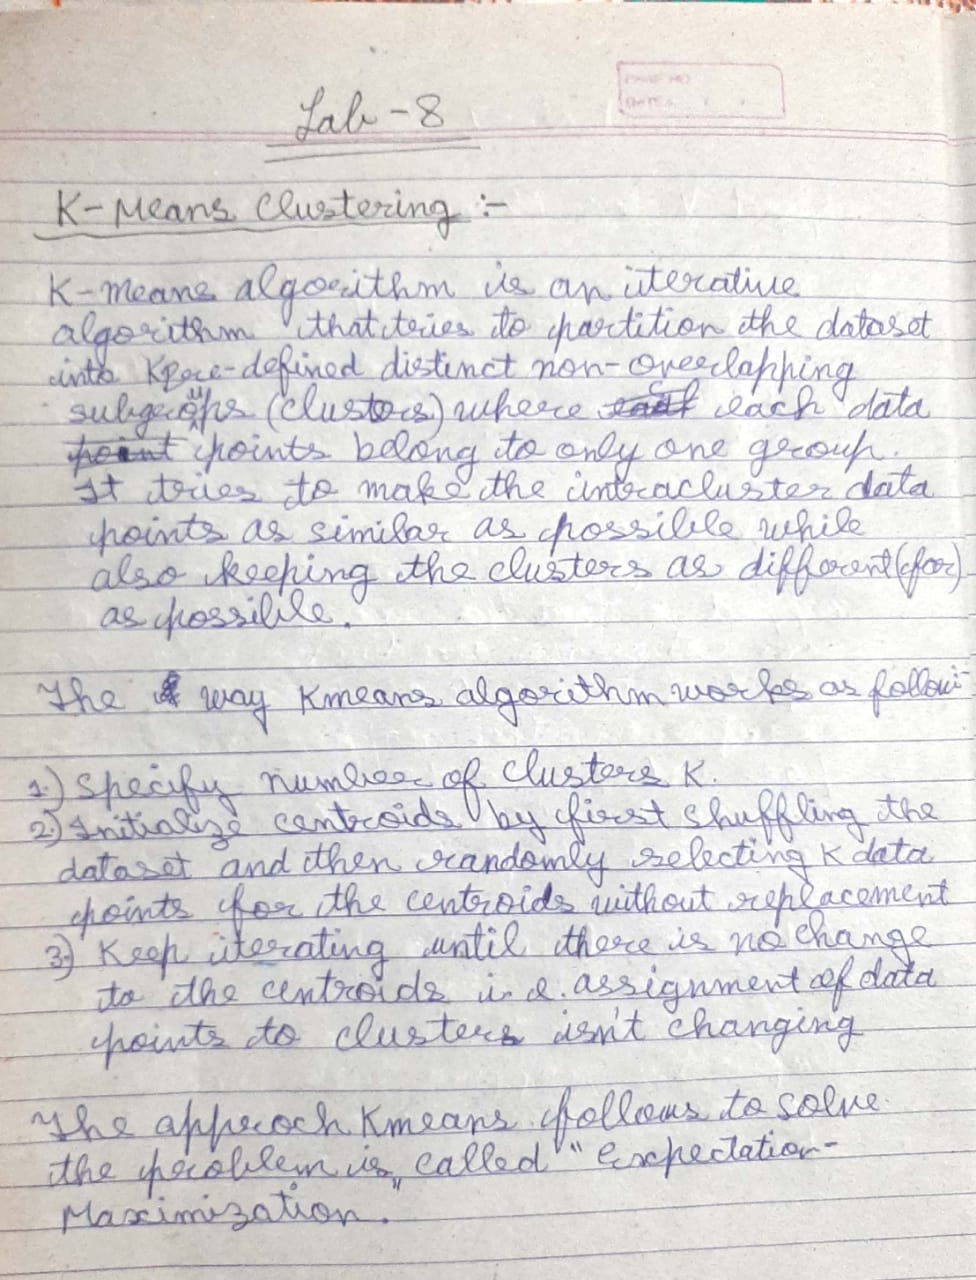 PAGE NO
DATE
Lab - 8
K-Means Clustering :-
K-means algorithm is an iterative
algorithm that tries to partition the dataset
into K pre-defined distinct non-overlapping
subgroups (clusters) where each data
point points belong to only one group.
It tries to make the intracluster data
points as similar as possible while
also keeping the clusters as different (far)
as possible.
The way Kmeans algorithm works as follow:-
1.) Specify number of clusters K.
2.) Initialize centroids by first shuffling the
dataset and then randomly selecting K data
points for the centroids without replacement
3.) Keep iterating until there is no change
to the centroids i.e. assignment of data
points to clusters isn't changing
The approch Kmeans follows to solve
the problem is called "Expectation-
Maximization".